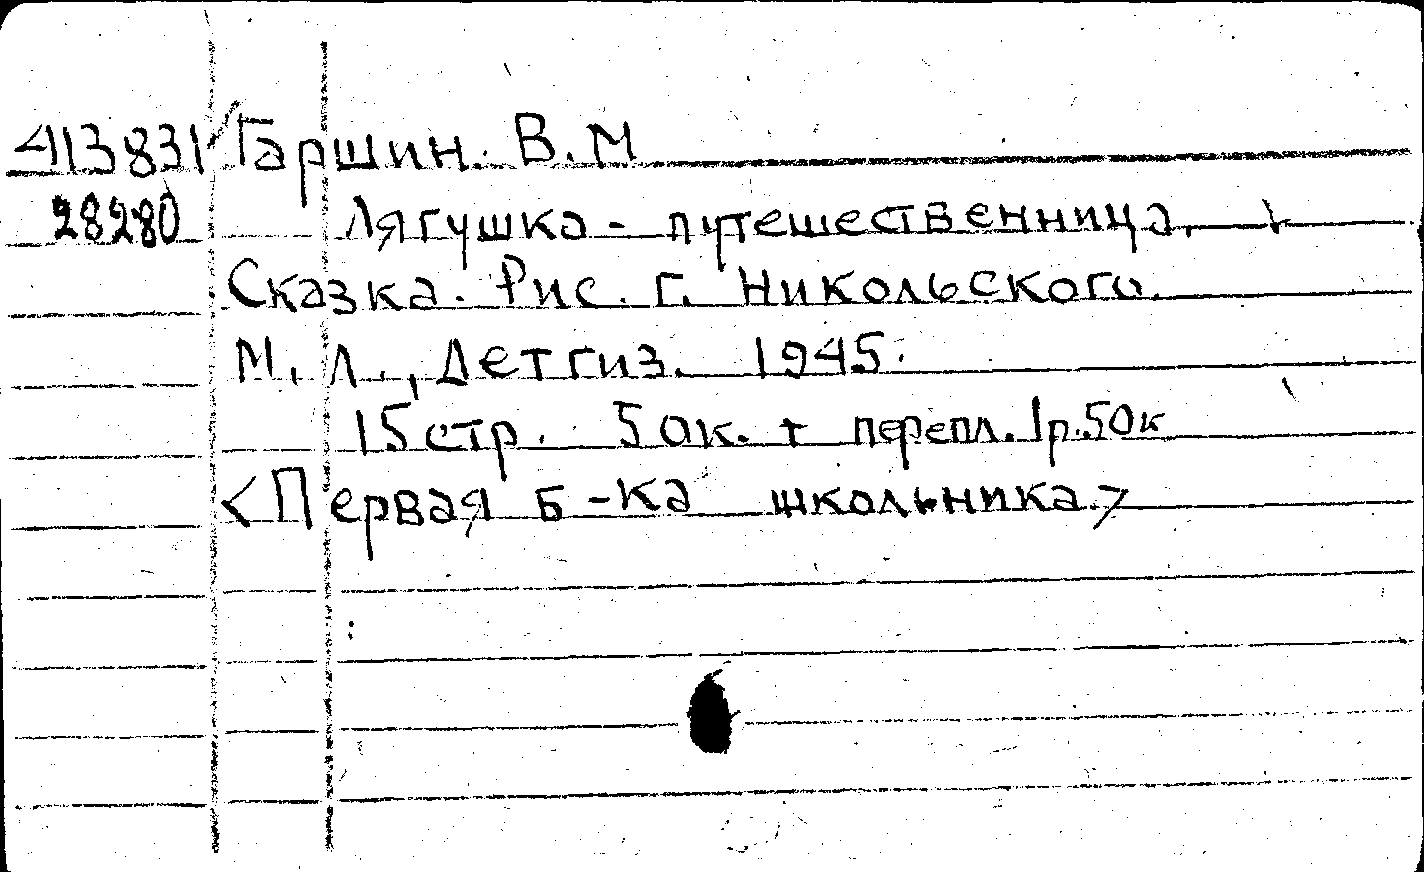 413831 Гаршин. В. М
28280 Лягушка - путешественница.
Сказка. Рис. Г. Никольского.
М. Л., Детгиз. 1945.
15 стр. 50к. + перепл. 1р.50к
<Первая б-ка школьника.>